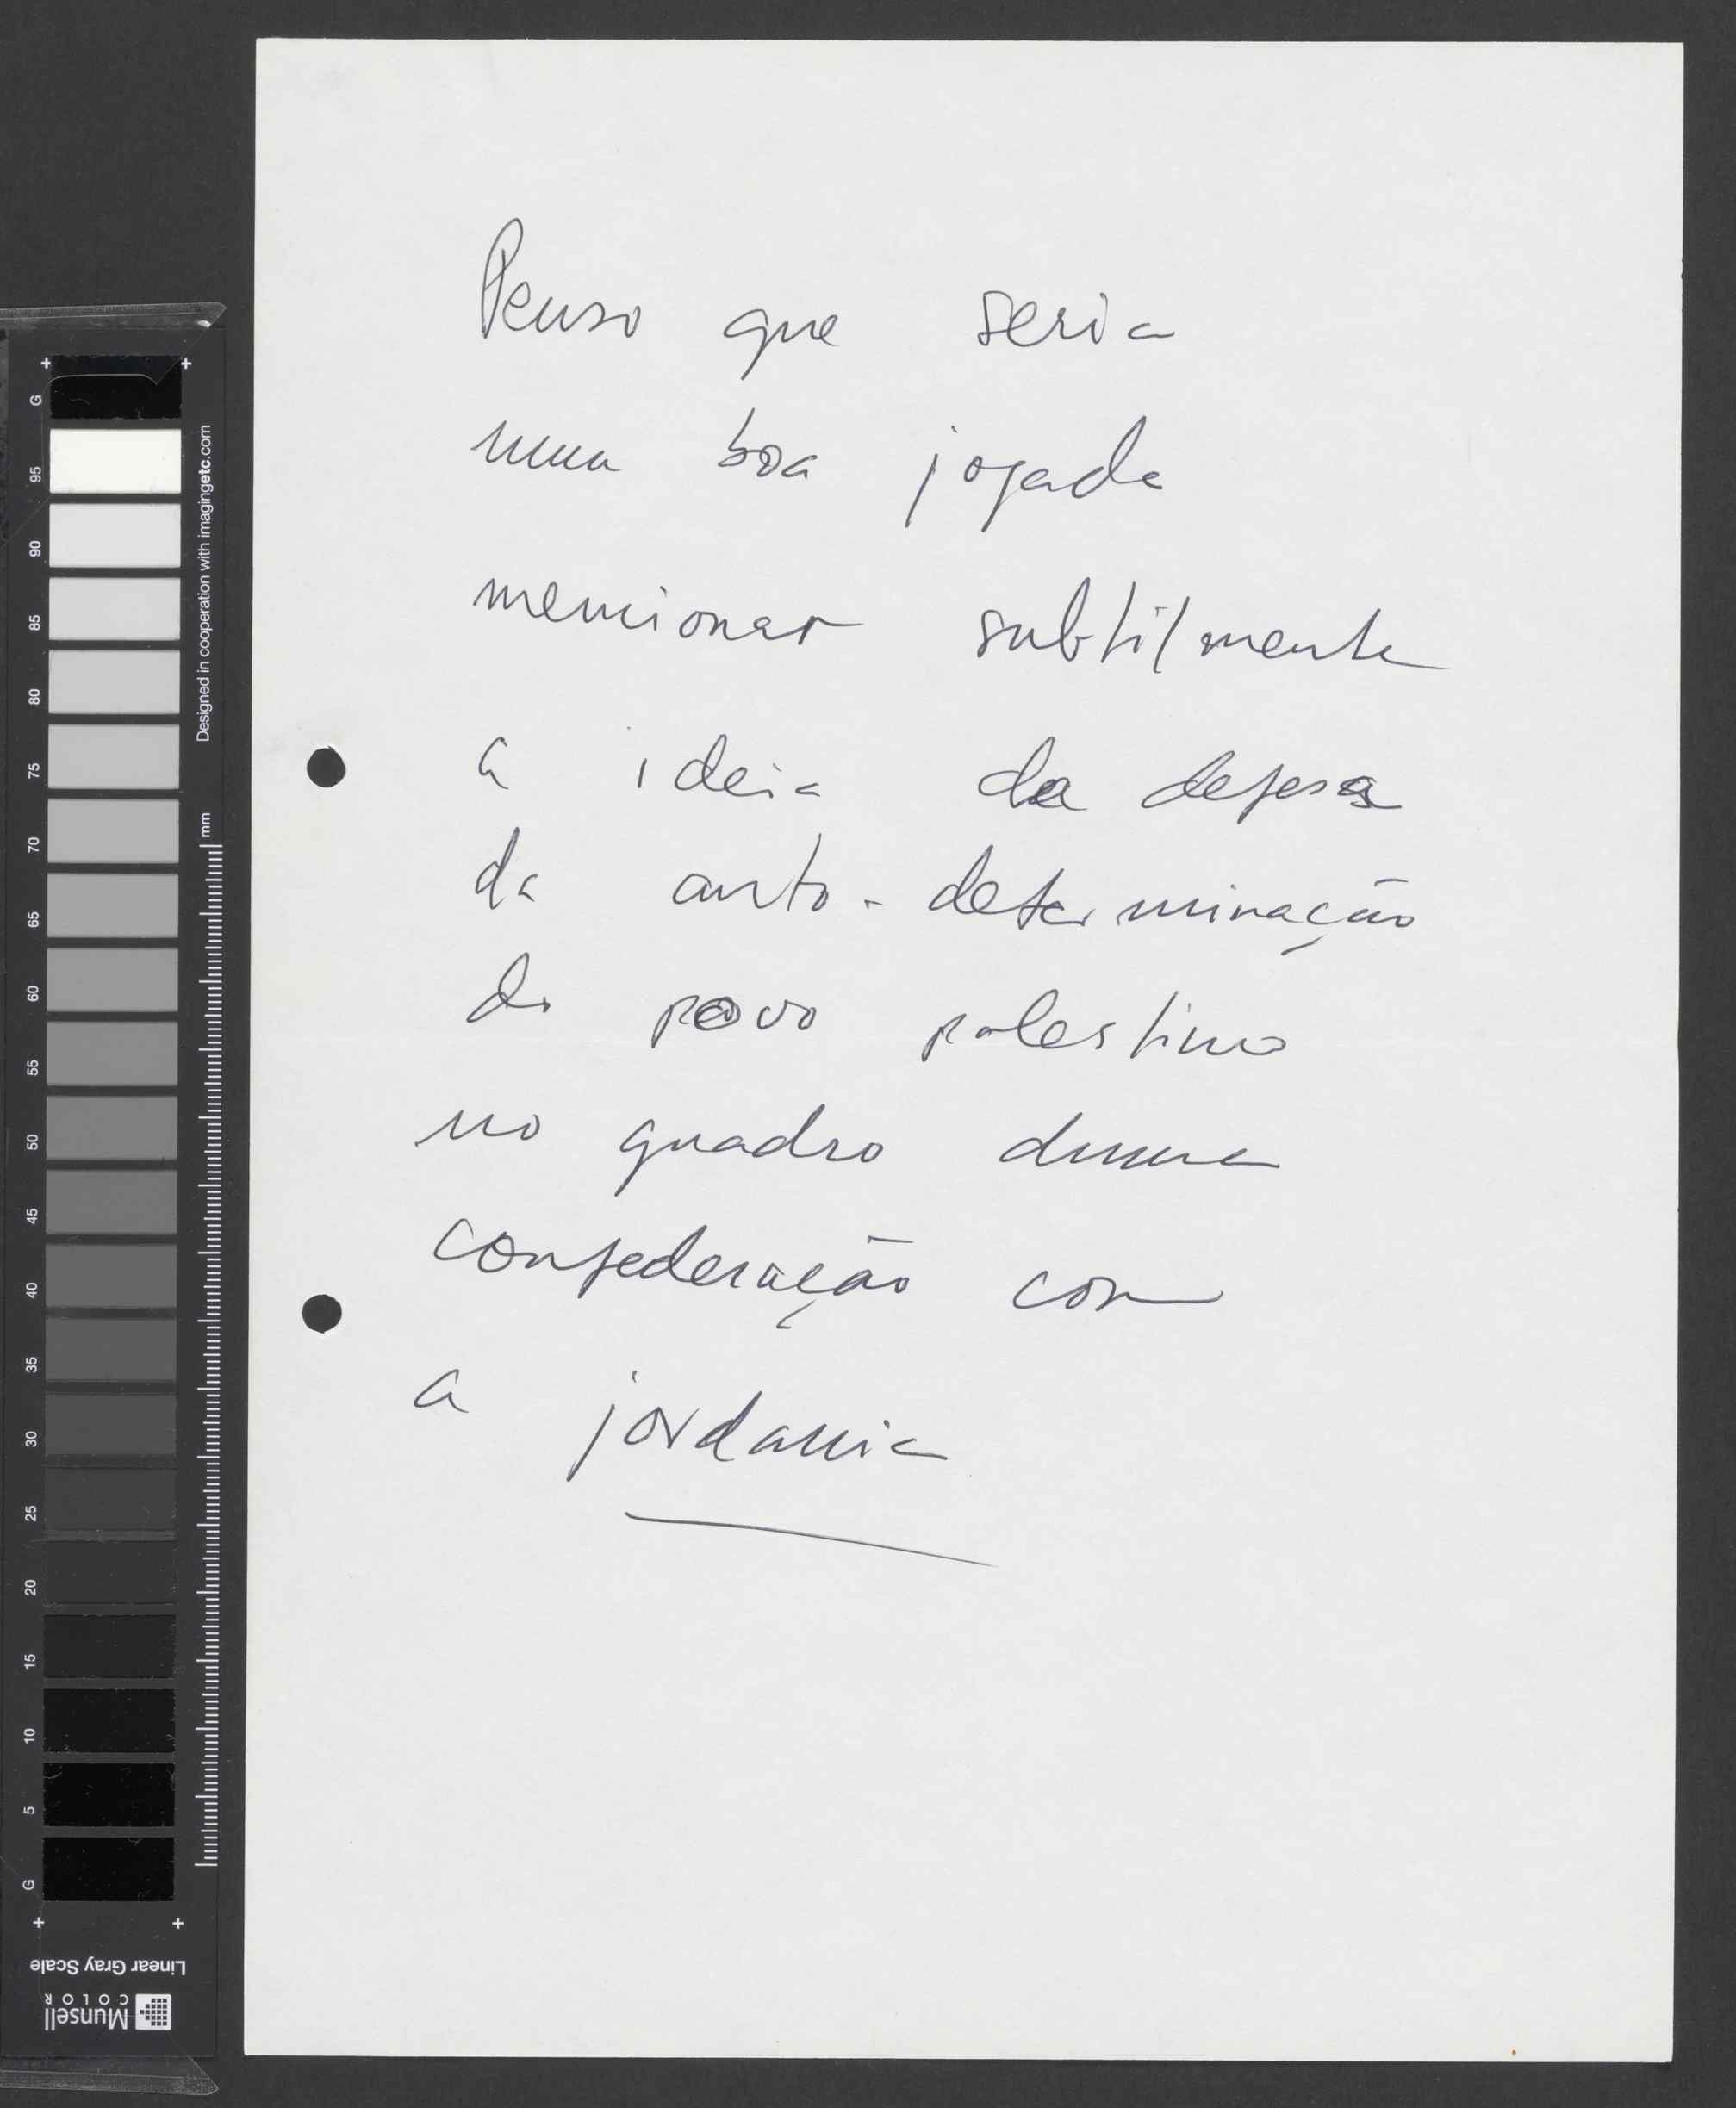 Penso que seria
uma boa jogada
mencionar subtilmente
a ideia da defesa
da auto-determinação
do povo palestino
no quadro duma
confederação com
a jordania
G
95
90
85
80
75
70
65
60
55
50
45
40
35
30
25
20
15
10
5
G
Designed in cooperation with imagingetc.com
mm
Linear Gray Scale
Munsell
COLOR